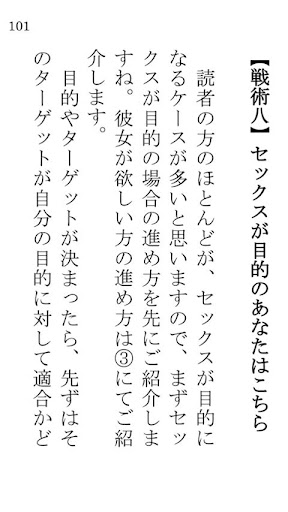 101
【戦術八】セックスが目的のあなたはこちら
読者の方のほとんどが、セックスが目的に
なるケースが多いと思いますので、まずセッ
クスが目的の場合の進め方を先にご紹介しま
すね。彼女が欲しい方の進め方は③にてご紹
介します。
目的やターゲットが決まったら、先ずはそ
のターゲットが自分の目的に対して適合かど